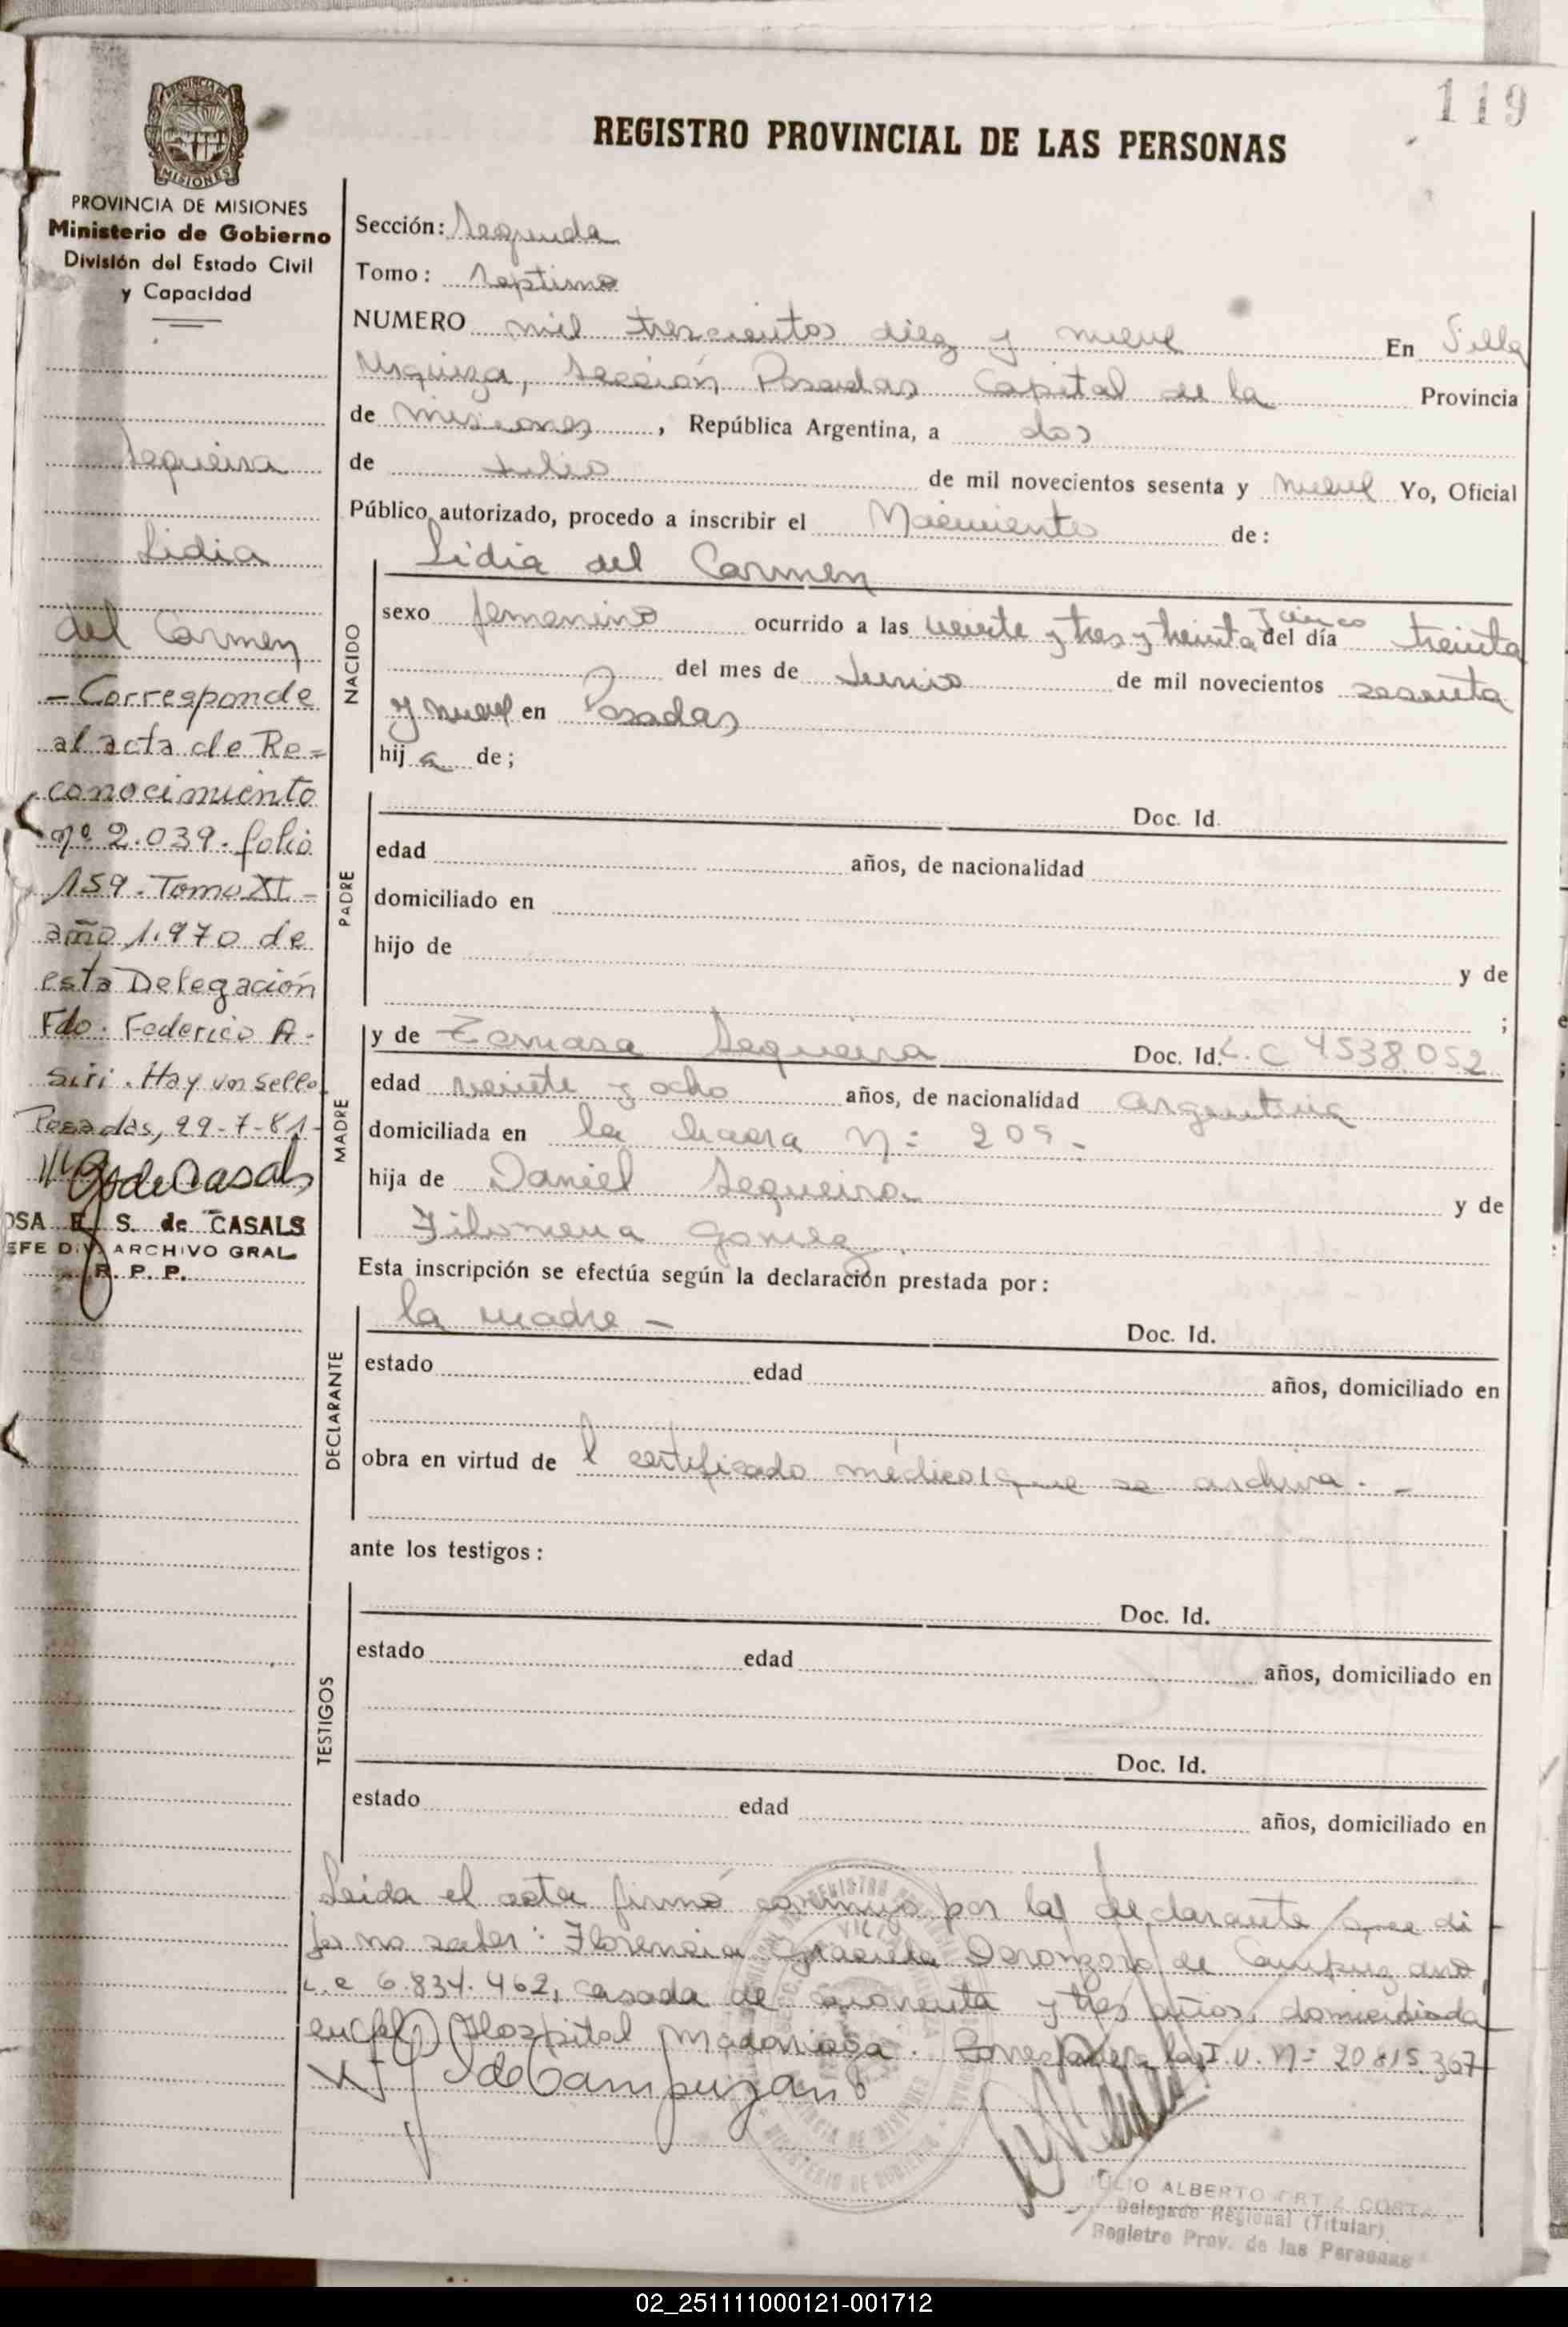 119
REGISTRO PROVINCIAL DE LAS PERSONAS
PROVINCIA DE MISIONES
PROVINCIA DE MISIONES
Ministerio de Gobierno
División del Estado Civil
y Capacidad
Sequeira
Lidia
del Carmen
- Corresponde
al acta de Re=
conocimiento
nº 2.039. folio
159. Tomo XI -
año 1.970 de
esta Delegación
Fdo. Federico A.
Siri. Hay un sello
Posadas, 29-7-81-
de Casals
OSA E. S. de CASALS
EFE DIV. ARCHIVO GRAL
R. P. P.
Sección: Segunda
Tomo: Septimo
NUMERO mil trescientos diez y nueve En Villa
Urquiza, Sección Posadas Capital de la Provincia
de Misiones, República Argentina, a dos
de Julio de mil novecientos sesenta y nueve Yo, Oficial
Público autorizado, procedo a inscribir el Nacimiento de:
Lidia del Carmen
NACIDO
sexo femenino ocurrido a las veinte y tres y treinta y cinco del día treinta
del mes de Junio de mil novecientos sesenta
y nueve en Posadas
hij a de;
PADRE
Doc. Id.
edad años, de nacionalidad
domiciliado en
hijo de y de
;
MADRE
y de Tomasa Sequeira Doc. Id. L.C 4538.052
edad veinte y ocho años, de nacionalidad argentina
domiciliada en la chacra N= 209-
hija de Daniel Sequeira y de
Filomena Gomez.
Esta inscripción se efectúa según la declaración prestada por:
DECLARANTE
la madre - Doc. Id.
estado edad años, domiciliado en
obra en virtud de l certificado médico que se archiva. -
ante los testigos:
TESTIGOS
Doc. Id.
estado edad años, domiciliado en
Doc. Id.
estado edad años, domiciliado en
Leida el acta firmó conmigo por la declarante que di-
jo no saber: Florencia Graciela de Campuzano
L.c 6.834.462, casada de cuarenta y tres años, domiciliada
en el Hospital Madariaga. la L.U. N= 20.815.367
de Campuzano
JULIO ALBERTO ORTIZ COSTA
Delegado Regional (Titular)
Registro Prov. de las Personas
02_251111000121-001712